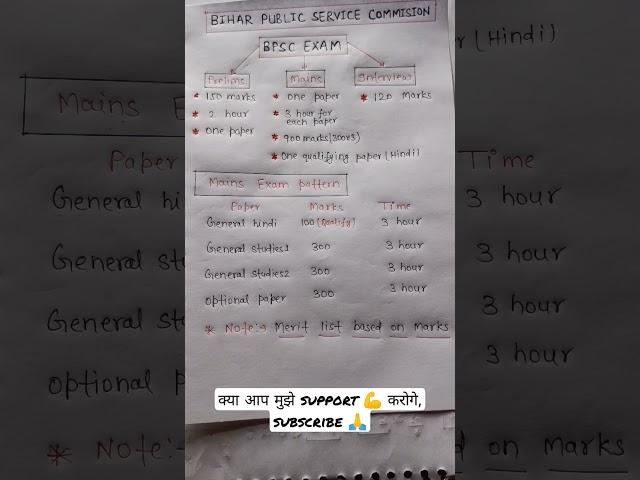 BIHAR PUBLIC SERVICE COMMISION
BPSC EXAM
Prelims
* 150 marks
* 2 hour
* one paper
Mains
* one paper
* 3 hour for each paper
* 900 marks (300×3)
* One qualifying paper (Hindi)
Interview
* 120 marks
Mains Exam pattern
Paper Marks Time
General hindi 100 (Qualify) 3 hour
General studies1 300 3 hour
General studies2 300 3 hour
optional paper 300 3 hour
* Note:→ Merit list based on marks
क्या आप मुझे SUPPORT 💪 करोगे,
SUBSCRIBE 🙏
r (Hindi)
Mains E
Paper Time
General hi 3 hour
General st 3 hour
General st 3 hour
optional p 3 hour
* Note:- on marks